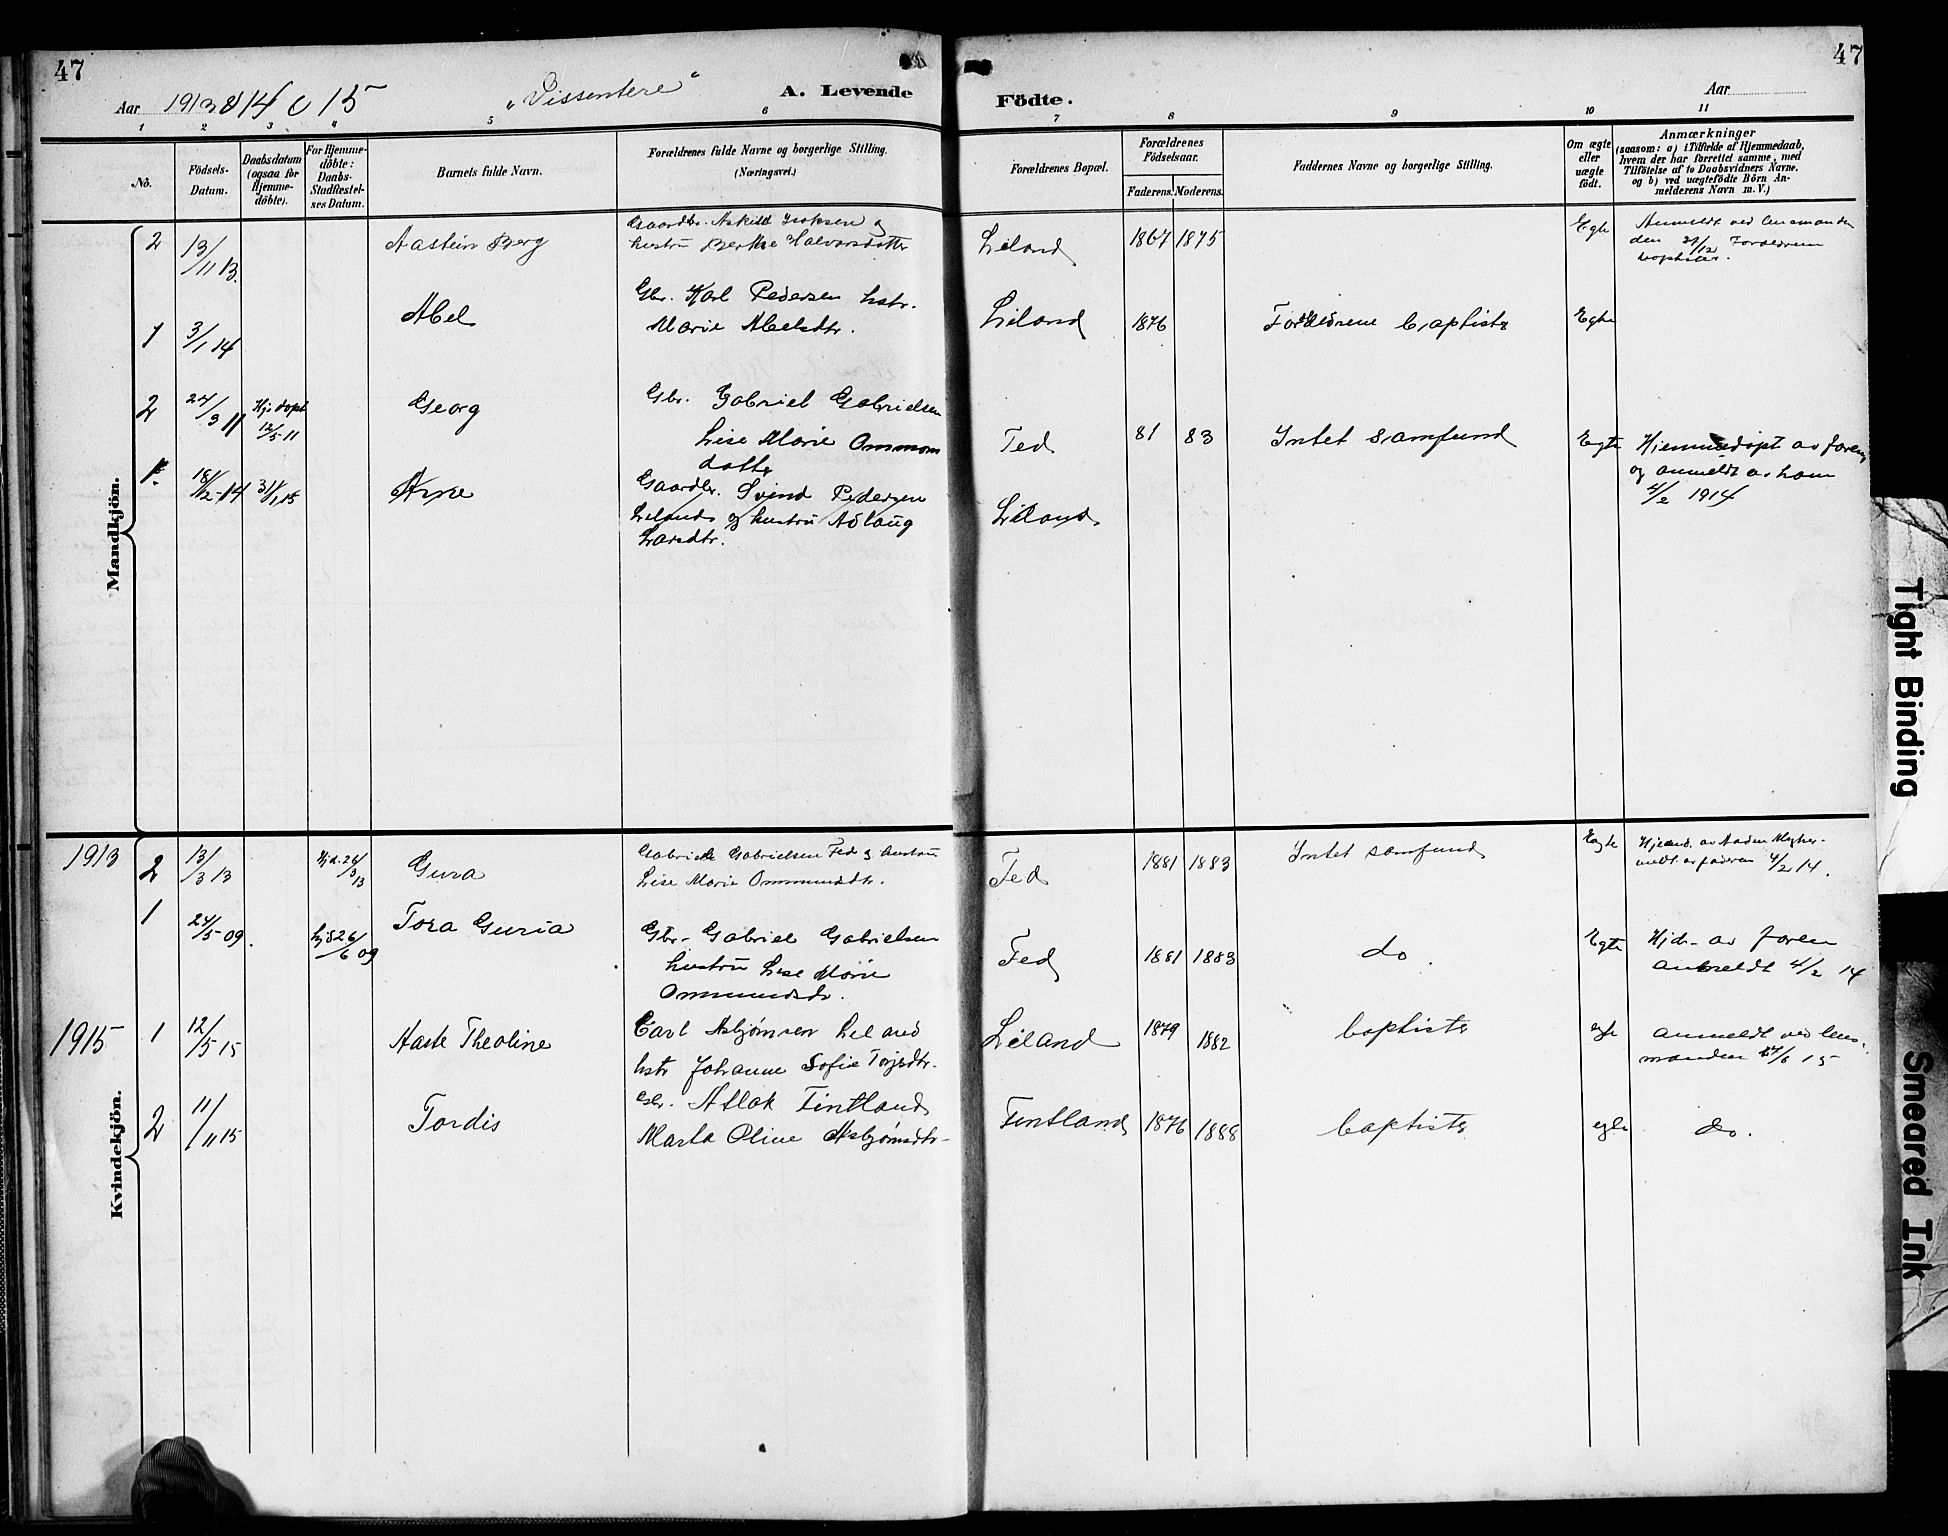 47
47
Aar 1913 & 14 & 15 „Dissentere“ A. Levende Födte. Aar
1 2 3 4 5 6 7 8 9 10 11
No.
Födsels-
Datum.
Daabsdatum
(ogsaa for
Hjemme-
döbte).
For Hjemme-
döbte:
Daabs-
Stadfæstel-
ses Datum.
Barnets fulde Navn.
Forældrenes fulde Navne og borgerlige Stilling.
(Næringsvei.)
Forældrenes Bopæl.
Forældrenes
Födselsaar.
Faderens. Moderens.
Faddernes Navne og borgerlige Stilling.
Om ægte
eller
uægte
födt.
Anmærkninger
(saasom: a) i Tilfælde af Hjemmedaab,
hvem der har forrettet samme, med
Tilföielse af to Daabsvidners Navne.
og b) ved uægtefödte Börn An-
melderens Navn m. V.)
Mandkjön.
2 13/11 13. Aastein Berg
Gaardbr. Askild Isaksen og
hustru Berthe Halvorsdatter
Lieland 1867 1875 Egte
Anmeldt ved lensmanden
den 22/12 Forældrene
baptister.
1 3/1 14 Abel
Gbr. Karl Pedersen hstr.
Marie Abelsdtr.
Lieland 1876 Forældrene baptister Egte
2 24/3 11 Hje döpt 12/5-11 Georg
Gbr. Gabriel Gabrielsen
Lise Marie Ommun
datter
Fed 81 83 Intet samfund Egte
Hjemmedöpt av faren
og anmeldt av ham
4/2 1914
1. 18/12-14 31/1,15 Arne
Gaardbr. Svend Pedersen
Lieland og hustru Aslaug
Larsdtr.
Lieland
Kvindekjön.
1913 2 13/3 13 Hjd. 24/3 13 Gura
Gabriel Gabrielsen Fed og hustru
Lise Marie Ommundsdtr.
Fed 1881 1883 Intet samfund Eagte
meldt av faderen 4/2 14.
1 24/5-09. hjd 26/6 09 Tora Guria
Gbr. Gabriel Gabrielsen
hustru Lise Marie
Ommundsdr.
Fed 1881 1883 do. Egte
Hjd- av faren
anmeldt 4/2 14
1915 1 12/5 15 Aaste Theoline
Carl Asbjørnsen Lieland
hstr Johanne Sofie Torjesdtr.
Lieland 1879 1882 baptister egte
anmeldt ved lens-
manden 17/6 15
2 11/11 15 Tordis
Gbr. Aslak Fintland
Marta Oline Asbjørnsdtr-
Fintland 1876 1888 baptister egte do.
Tight Binding
Smeared Ink